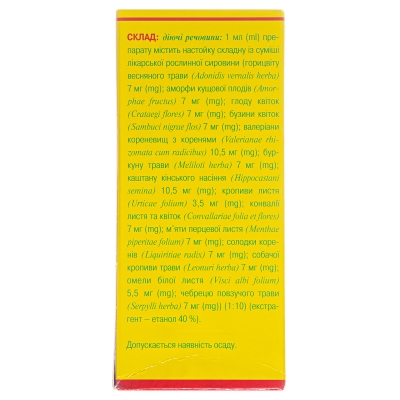 СКЛАД: діючі речовини: 1 мл (ml) пре-
парату містить настойку складну із суміші
лікарської рослинної сировини (горицвіту
весняного трави (Adonidis vernalis herba)
7 мг (mg); аморфи кущової плодів (Amor-
phae fructus) 7 мг (mg); глоду квіток
(Crataegi flores) 7 мг (mg); бузини квіток
(Sambuci nigrae flos) 7 мг (mg); валеріани
кореневищ з коренями (Valerianae rhi-
zomata cum radicibus) 10,5 мг (mg); бур-
куну трави (Meliloti herba) 7 мг (mg);
каштану кінського насіння (Hippocastani
semina) 10,5 мг (mg); кропиви листя
(Urticae folium) 3,5 мг (mg); конвалії
листя та квіток (Convallariae folia et flores)
7 мг (mg); м'яти перцевої листя (Menthae
piperitae folium) 7 мг (mg); солодки коре-
нів (Liquiritiae radix) 7 мг (mg); собачої
кропиви трави (Leonuri herba) 7 мг (mg);
омели білої листя (Visci albi folium)
5,5 мг (mg); чебрецю повзучого трави
(Serpylli herba) 7 мг (mg)) (1:10) (екстра-
гент – етанол 40 %).
Допускається наявність осаду.